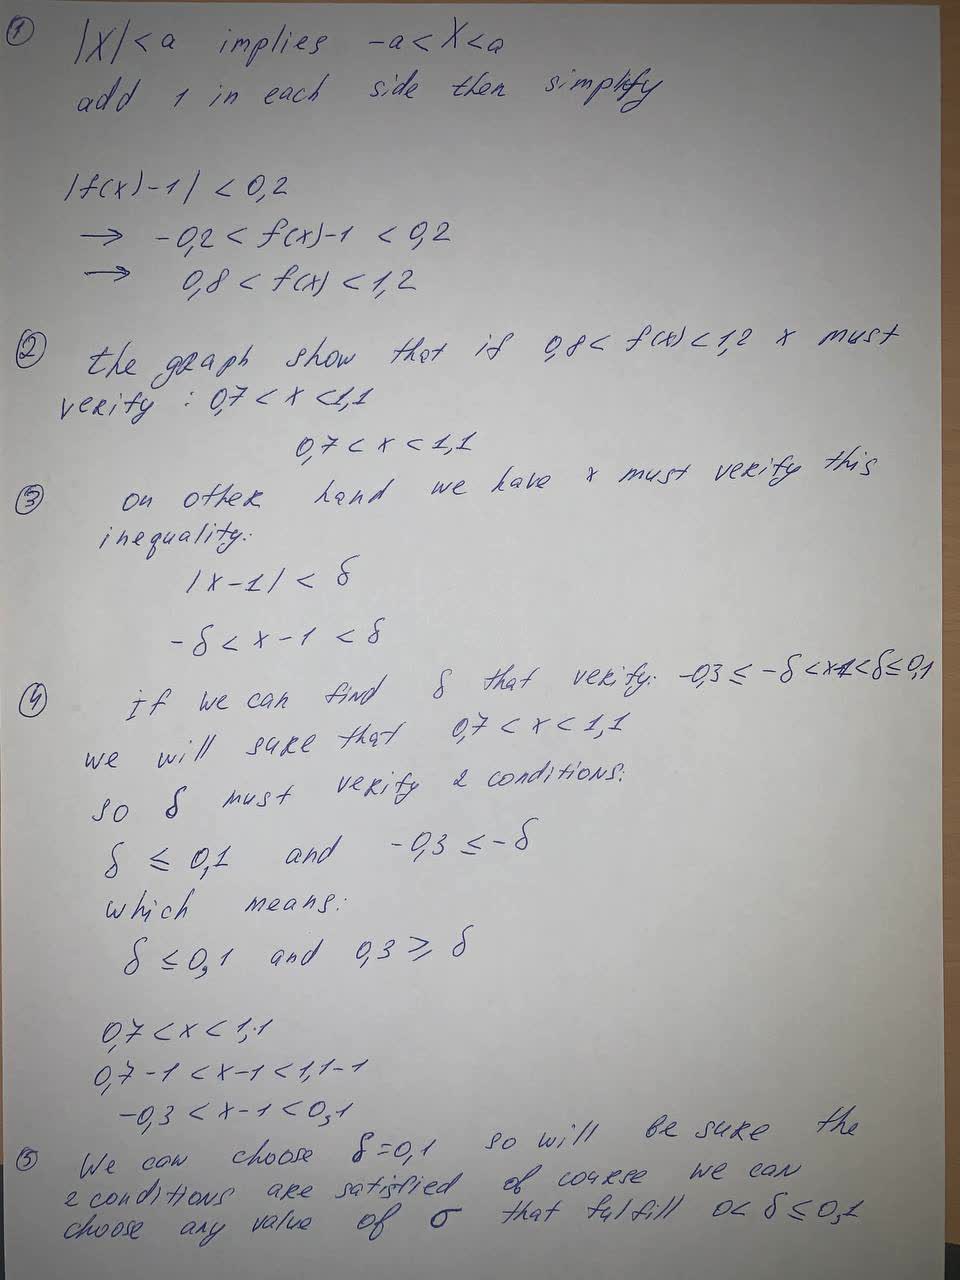 ① |X| < a implies -a < X < a
add 1 in each side then simplify
|f(x)-1| < 0,2
→ -0,2 < f(x)-1 < 0,2
→ 0,8 < f(x) < 1,2
② the graph show that if 0,8 < f(x) < 1,2 x must
verify : 0,7 < x < 1,1
0,7 < x < 1,1
③ on other hand we have x must verify this
inequality:
|x-1| < δ
-δ < x-1 < δ
④ If we can find δ that verify: -0,3 ≤ -δ < x-1 < δ ≤ 0,1
we will sure that 0,7 < x < 1,1
so δ must verify 2 conditions:
δ ≤ 0,1 and -0,3 ≤ -δ
which means:
δ ≤ 0,1 and 0,3 ≥ δ
0,7 < x < 1,1
0,7-1 < x-1 < 1,1-1
-0,3 < x-1 < 0,1
⑤ We can choose δ=0,1 so will be sure the
2 conditions are satisfied of course we can
choose any value of σ that fulfill 0 < δ ≤ 0,1